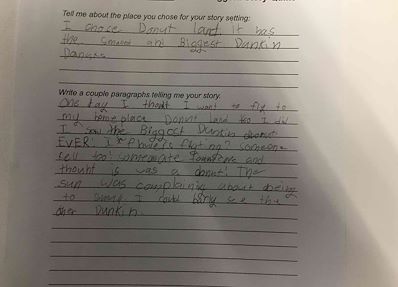 Tell me about the place you chose for your story setting:
I chose Donut land. it has
the smallest and Biggest Dunkin
Danuts
Write a couple paragraphs telling me your story.
One day I thoht I want to fly to
my home place Donut land so I did
I saw the Biggest Dunkin donut
EVER! I fluing? someone
fell too! and
thought is was a donut! The
sun was complaining about being
to sunny I could barly see the
other Dunkin.